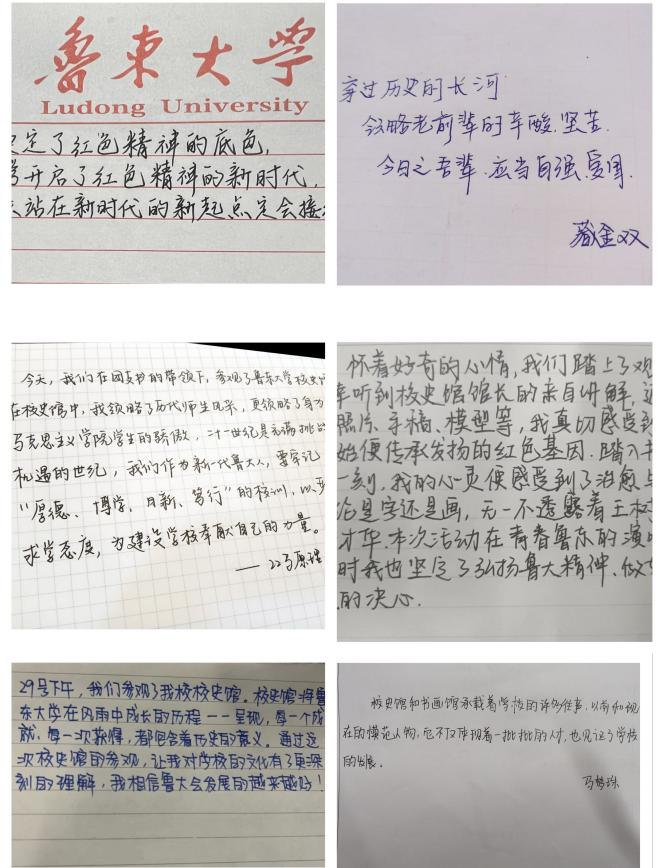 鲁东大学
Ludong University
定了红色精神的底色，
开启了红色精神的新时代，
站在新时代的新起点定会接
穿过历史的长河
领略老前辈的辛酸、坚苦
今日之吾辈，应当自强、爱国
金双
今天，我们在团支书的带领下，参观了鲁东大学校史馆
在校史馆中，我领略了历代师生风采，更领略了身为
马克思主义学院学生的骄傲，二十一世纪是充满挑战
机遇的世纪，我们作为新一代鲁大人，要牢记
“厚德、博学、日新、笃行”的校训，以
求学态度，为建设学校奉献自己的力量。
——22马原理
怀着好奇的心情，我们踏上了观
听到校史馆馆长的亲自讲解，
照片、手稿、模型等，我真切感受到
始便传承发扬的红色基因。踏入书
一刻，我的心灵便感受到了治愈与
论是字还是画，无一不透露着王树
才华。本次活动在青春鲁东的演唱
时我也坚定了弘扬鲁大精神、做
的决心。
29号下午，我们参观了我校校史馆。校史馆将鲁
东大学在风雨中成长的历程一一呈现，每一个成
就，每一次获得，都包含着历史的意义。通过这
次校史馆的参观，让我对学校的文化有了更深
刻的理解，我相信鲁大会发展的越来越好！
校史馆和书画馆承载着学校的许多往事，以前和现
在的模范人物，它不仅体现着一批批的人才，也见证了学校
的发展。
马梦珠